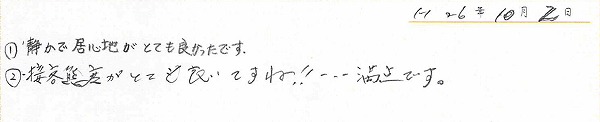 H 26年 10月 2日
① 静かで居心地がとても良かったです.
② 接客態度がとても良いですね!! --- 満点です。